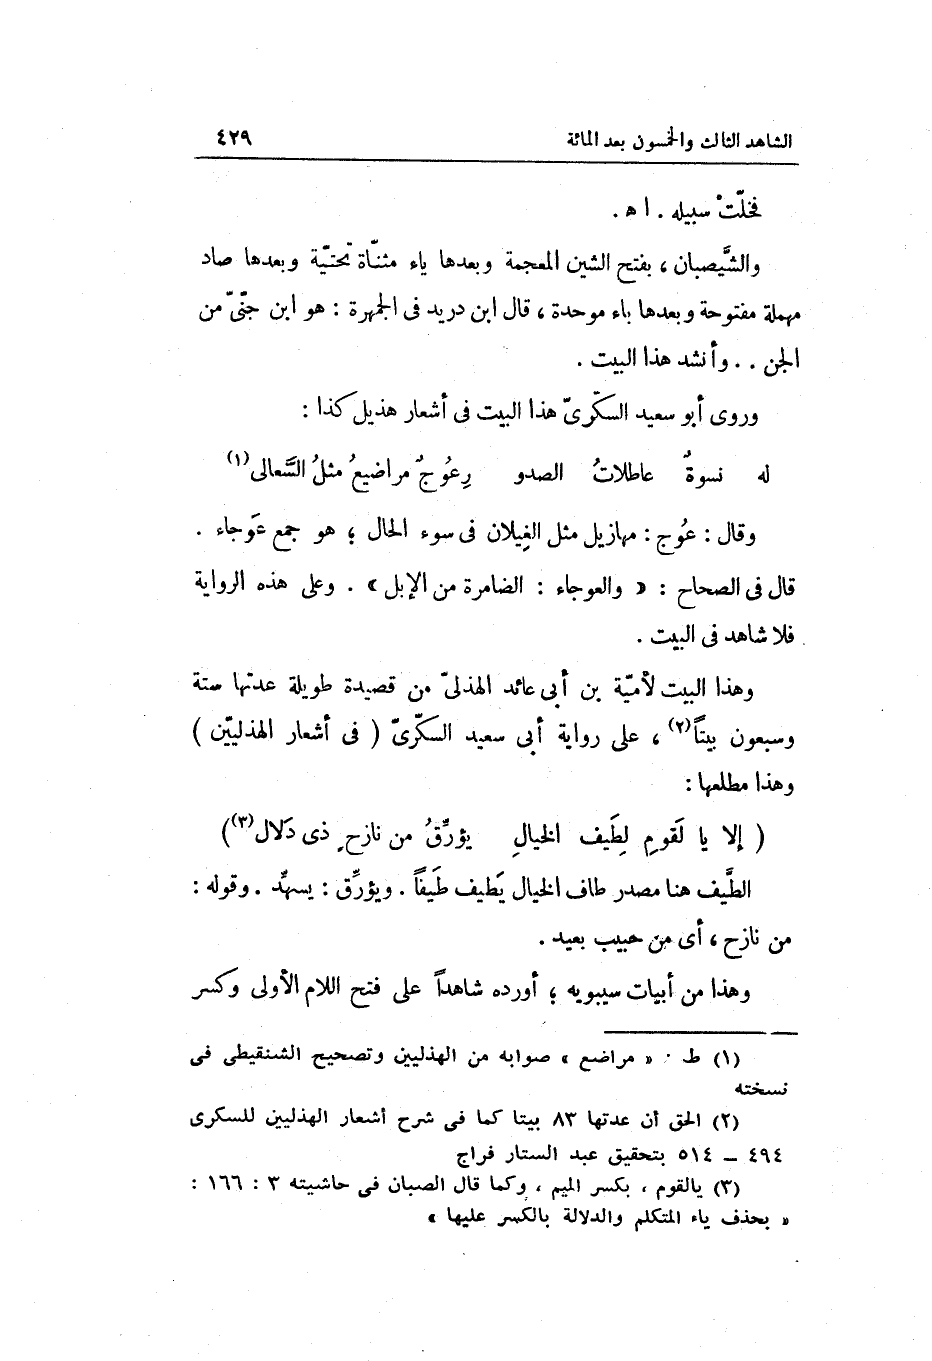 الشاهد الثالث والخمسون بعد المائة ٤٢٩
فخلَّتْ سبيله . ا ه .
والشَّيصبان ، بفتح الشين المعجمة وبعدها ياء مثنّاة تحتيّة وبعدها صاد
مهملة مفتوحة وبعدها باء موحدة ، قال ابن دريد فى الجمهرة : هو ابن جنّىّ من
الجن . . وأنشد هذا البيت .
وروى أبو سعيد السكّرىّ هذا البيت فى أشعار هذيل كذا :
له نسوةٌ عاطلاتُ الصدو رِ عُوجٌ مراضيعُ مثلُ السَّعالى(١)
وقال : عُوج : مهازيل مثل الغِيلان فى سوء الحال ؛ هو جمع عَوجاء .
قال فى الصحاح : « والعوجاء : الضامرة من الإبل » . وعلى هذه الرواية
فلا شاهد فى البيت .
وهذا البيت لأميّة بن أبى عائد الهذلىّ من قصيدة طويلة عدتها ستة
وسبعون بيتاً(٢) ، على رواية أبى سعيد السكّرىّ ( فى أشعار الهذليّين )
وهذا مطلعها :
( إلا يا لَقومِ لِطَيف الخيالِ يؤرِّقُ من نازحٍ ذى دَلال(٣) )
الطَّيف هنا مصدر طاف الخيال يَطيف طَيفاً . ويؤرِّق : يسهِّد . وقوله :
من نازح ، أى من حبيب بعيد .
وهذا من أبيات سيبويه ؛ أورده شاهداً على فتح اللام الأولى وكسر
(١) ط : « مراضع » صوابه من الهذليين وتصحيح الشنقيطى فى
نسخته
(٢) الحق أن عدتها ٨٣ بيتا كما فى شرح أشعار الهذليين للسكرى
٤٩٤ – ٥١٤ بتحقيق عبد الستار فراج
(٣) يالقوم ، بكسر الميم ، وكما قال الصبان فى حاشيته ٣ : ١٦٦ :
« بحذف ياء المتكلم والدلالة بالكسر عليها »